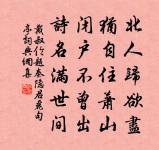 北人歸欲盡
猶自住蕭山
閉戶不曾出
詩名滿世間
戴叔倫題秦隱君麗句
亭詞典網書